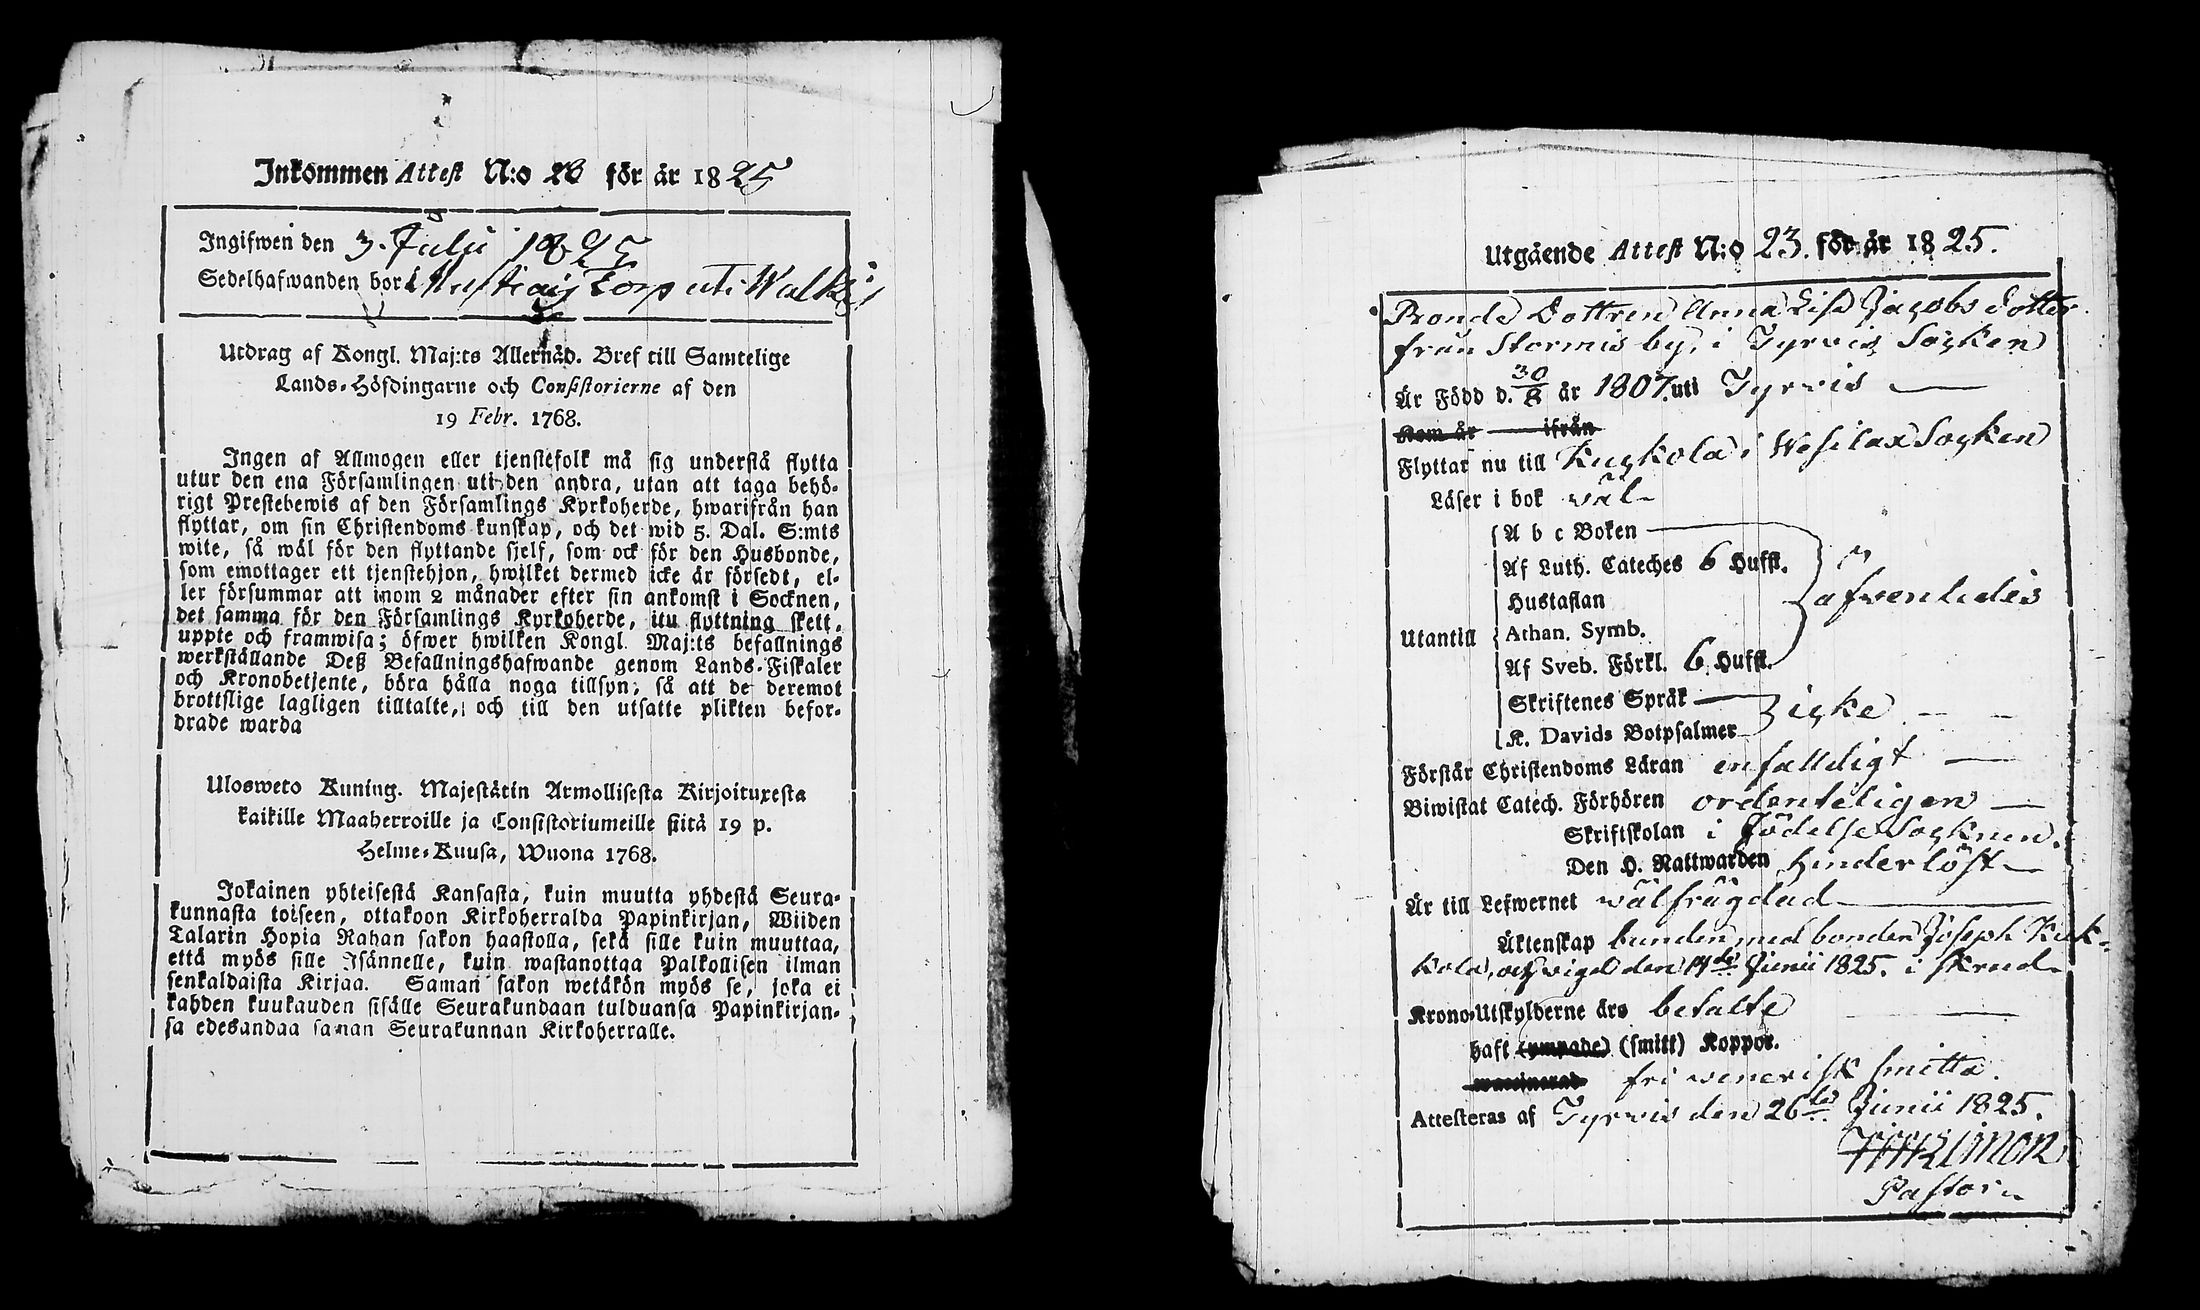 Inkommen Attest N:o 23 för år 1825
Ingifwen den 3. Julii 1825
Sedelhafwanden bor i
Utdrag af Kongl. Maj:ts Allernåd. Bref till Samtelige
Lands-Höfdingarne och Consistorierne af den
19 Febr. 1768.
Ingen af Allmogen eller tjenstefolk må sig understå flytta
utur den ena Församlingen uti den andra, utan att taga behö-
rigt Prestebewis af den Församlings Kyrkoherde, hwarifrån han
flyttar, om sin Christendoms kunskap, och det wid 5. Dal. S:mts
wite, så wäl för den flyttande sjelf, som ock för den Husbonde,
som emottager ett tjenstehjon, hwilket dermed icke är försedt, el-
ler försummar att inom 2 månader efter sin ankomst i Socknen,
det samma för den Församlings Kyrkoherde, itu flyttning skett,
uppte och framwisa; öfwer hwilken Kongl. Maj:ts befallnings
werkställande Deß Befallningshafwande genom Lands-Fiskaler
och Kronobetjente, böra hålla noga tillsyn; så att de deremot
brottslige lagligen tilltalte, och till den utsatte plikten befor-
drade warda
Ulosweto Kuning. Majestätin Armollisesta Kirjoituxesta
kaikille Maaherroille ja Consistoriumeille siitä 19 p.
Helme-Kuusa, Wuona 1768.
Jokainen yhteisestä Kansasta, kuin muutta yhdestä Seura-
kunnasta toiseen, ottakoon Kirkoherralda Papinkirjan, Wiiden
Talarin Hopia Rahan sakon haastolla, sekä sille kuin muuttaa,
että myös sille Isännelle, kuin wastanottaa Palkollisen ilman
senkaldaista Kirjaa. Saman sakon wetäkön myös se, joka ei
kahden kuukauden sisälle Seurakundaan tulduansa Papinkirjan-
sa edesandaa saman Seurakunnan Kirkoherralle.
Utgående Attest N:o 23. för år 1825.
Bonde Dottren Anna Lisa Jacobs dotter
från Stormis by, i Tyrvis Socken
Är Född d. 30/8 år 1807. uti Tyrvis
Kom år ifrån
Flyttar nu till Kuckola i Wesilax Socken
Läser i bok wäl
A b c Boken
Af Luth. Cateches 6 Hufst.
Hustaflan
äfwenledes
Utantill
Athan. Symb.
Af Sveb. Förkl. 6 Hufst.
Skriftenes Språk
icke
K. Davids Botpsalmer
Förstår Christendoms Läran enfalldigt
Biwistat Catech. Förhören ordenteligen
Skriftskolan i Födelse Socknen.
Den H. Nattwarden hinderlöst
Är till Lefwernet wälfrägdad
Äktenskap bunden med bonden Joseph Kuk-
kola, och wigd den 19de Junii 1825. i
Krono-Utskylderne äro betalte
haft (ympade) (smitt) Koppor.
waccinerad fri wenerisk smitta.
Attesteras af Tyrvis den 26te Junii 1825.
Pastor